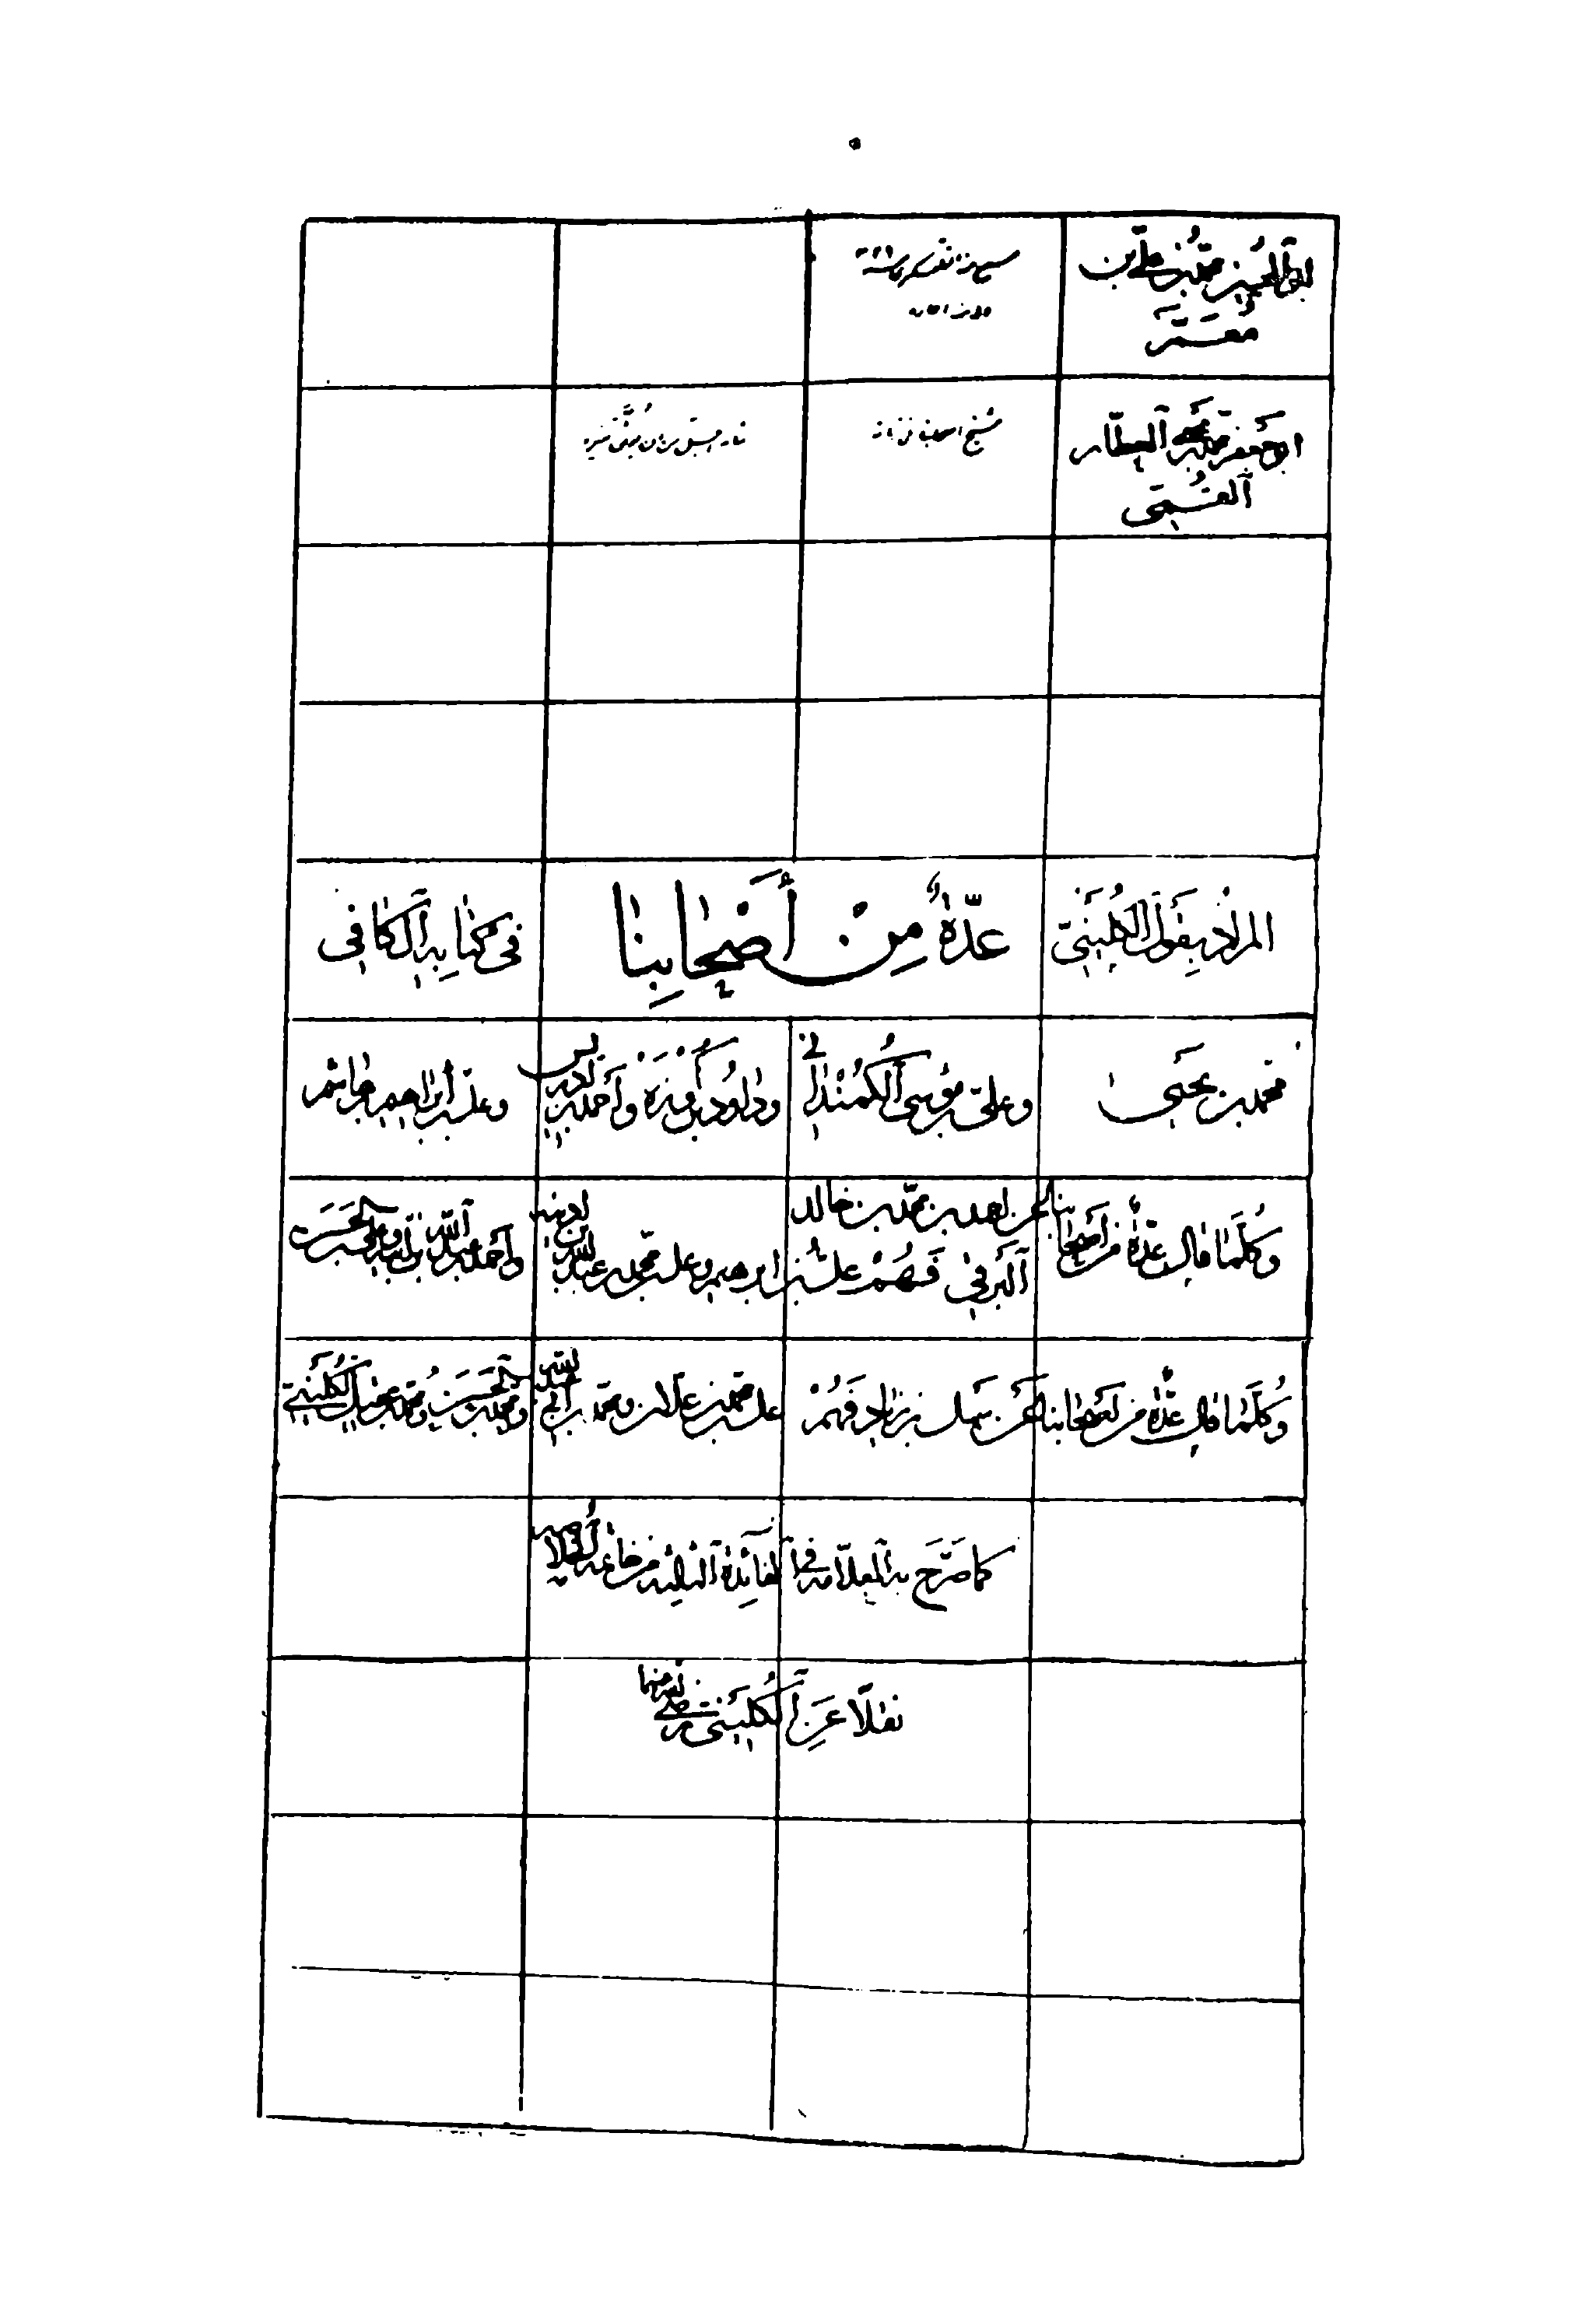 ابو الحسين محمد بن علي بن
مُعَمَّر
ابو جعفر محمد بن يحيى العطار
القُمّي
شيخ اصحابنا في زمانه
المراد بِقَول الكُلَيني عدّةٌ مِنْ أَصْحَابِنَا في كتابه الكافي
محمد بن يحيى وعليّ بن موسى الكُمُنْذاني وداود بن كُورَة وأحمد بن ادريس وعلي بن ابراهيم بن هاشم
وكُلَّما قال عدّةٌ من أصحابنا عن احمد بن محمد بن خالد
البَرقي فَهُمْ علي بن ابرهيم وعلي بن محمد بن عبد الله بن اذينه وأحمد بن عبد الله بن أميه وعلي بن الحَسَن
وكُلَّما قال عدّةٌ من أصحابنا عن سَهل بن زياد فَهُمْ علي بن محمد بن علان ومحمد بن أبي عبد الله ومحمد بن الحَسَن ومحمد بن عقيل الكُلَيني
كما صَرَّحَ به العلّامة في الفائدة الثالثة من خاتمة
نقلًا عَنِ الكُلَيني رضي الله عنهما